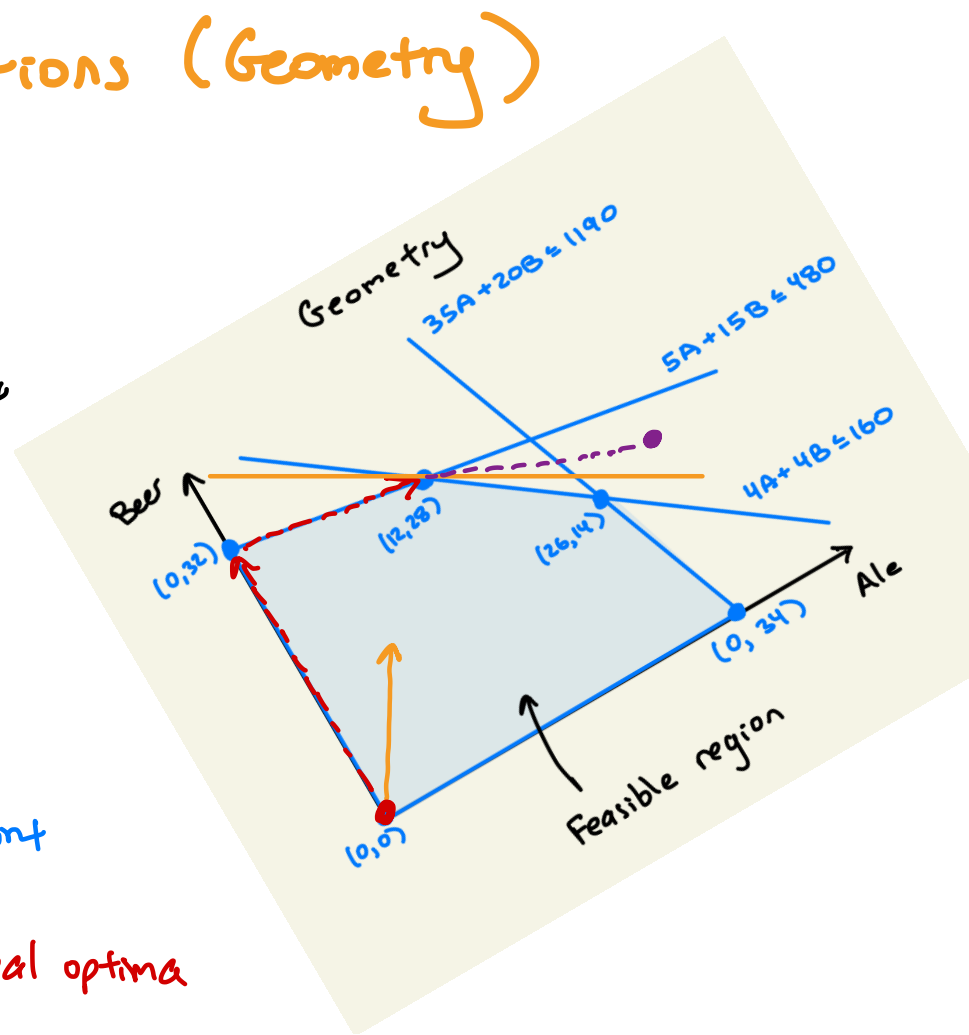 (Geometry)
Geometry
35A+20B≤1190
5A+15B≤480
4A+4B≤160
Beer
(0,32)
(12,28)
(26,14)
Ale
(0, 34)
(0,0)
Feasible region
optima